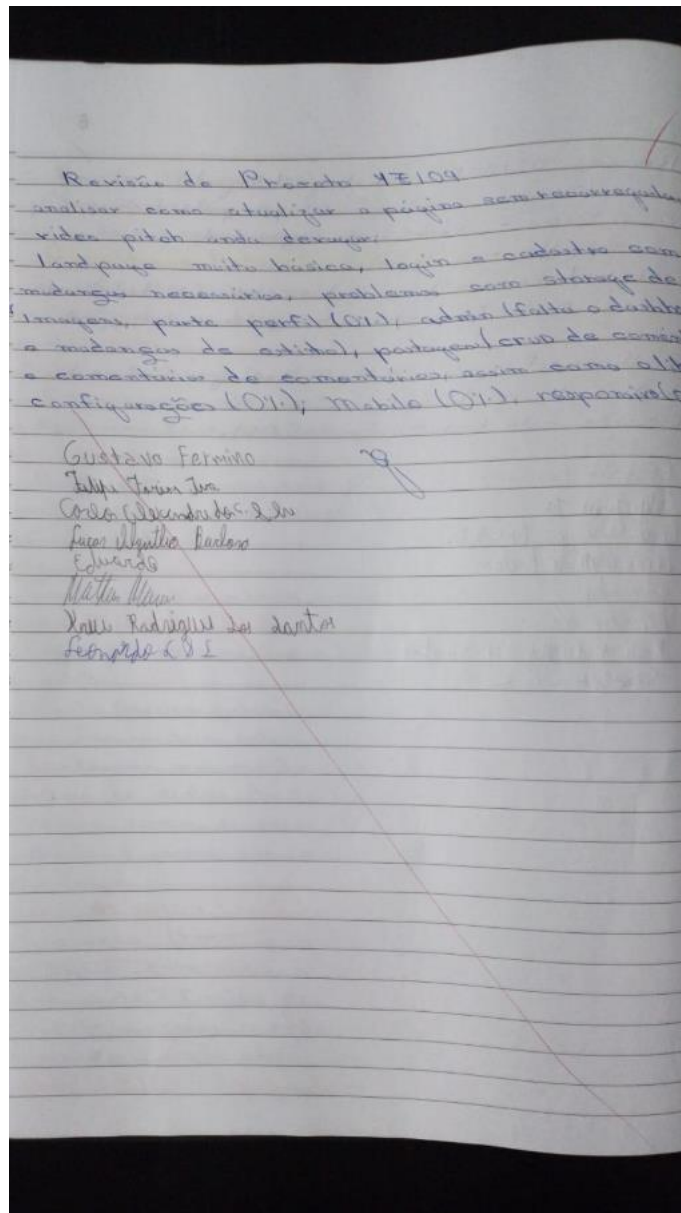 Revisão do Projeto 17/09
analisar como atualizar a página sem recarregada
video pitch ainda
landpage muito básica, login e cadastro com
mudanças necessárias, problemas com storage de
imagens, parte perfil (0%), admin (falta o dashbo
e mudanças de estilo), postagem/crud de comen
e comentários de comentários, assim como
configurações (0%), Mobile (0%), responsivo(
Gustavo Fermino
Felipe
Carlos Alexandre da C.
Lucas Barbosa
Eduardo
Rodrigues dos Santos
Leonardo